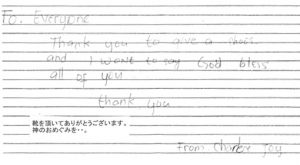 To. Everyone
Thank you to give a shoes.
and I want to say God bless
all of you
thank you
靴を頂いてありがとうございます。
神のおめぐみを・・。
From Charley Joy